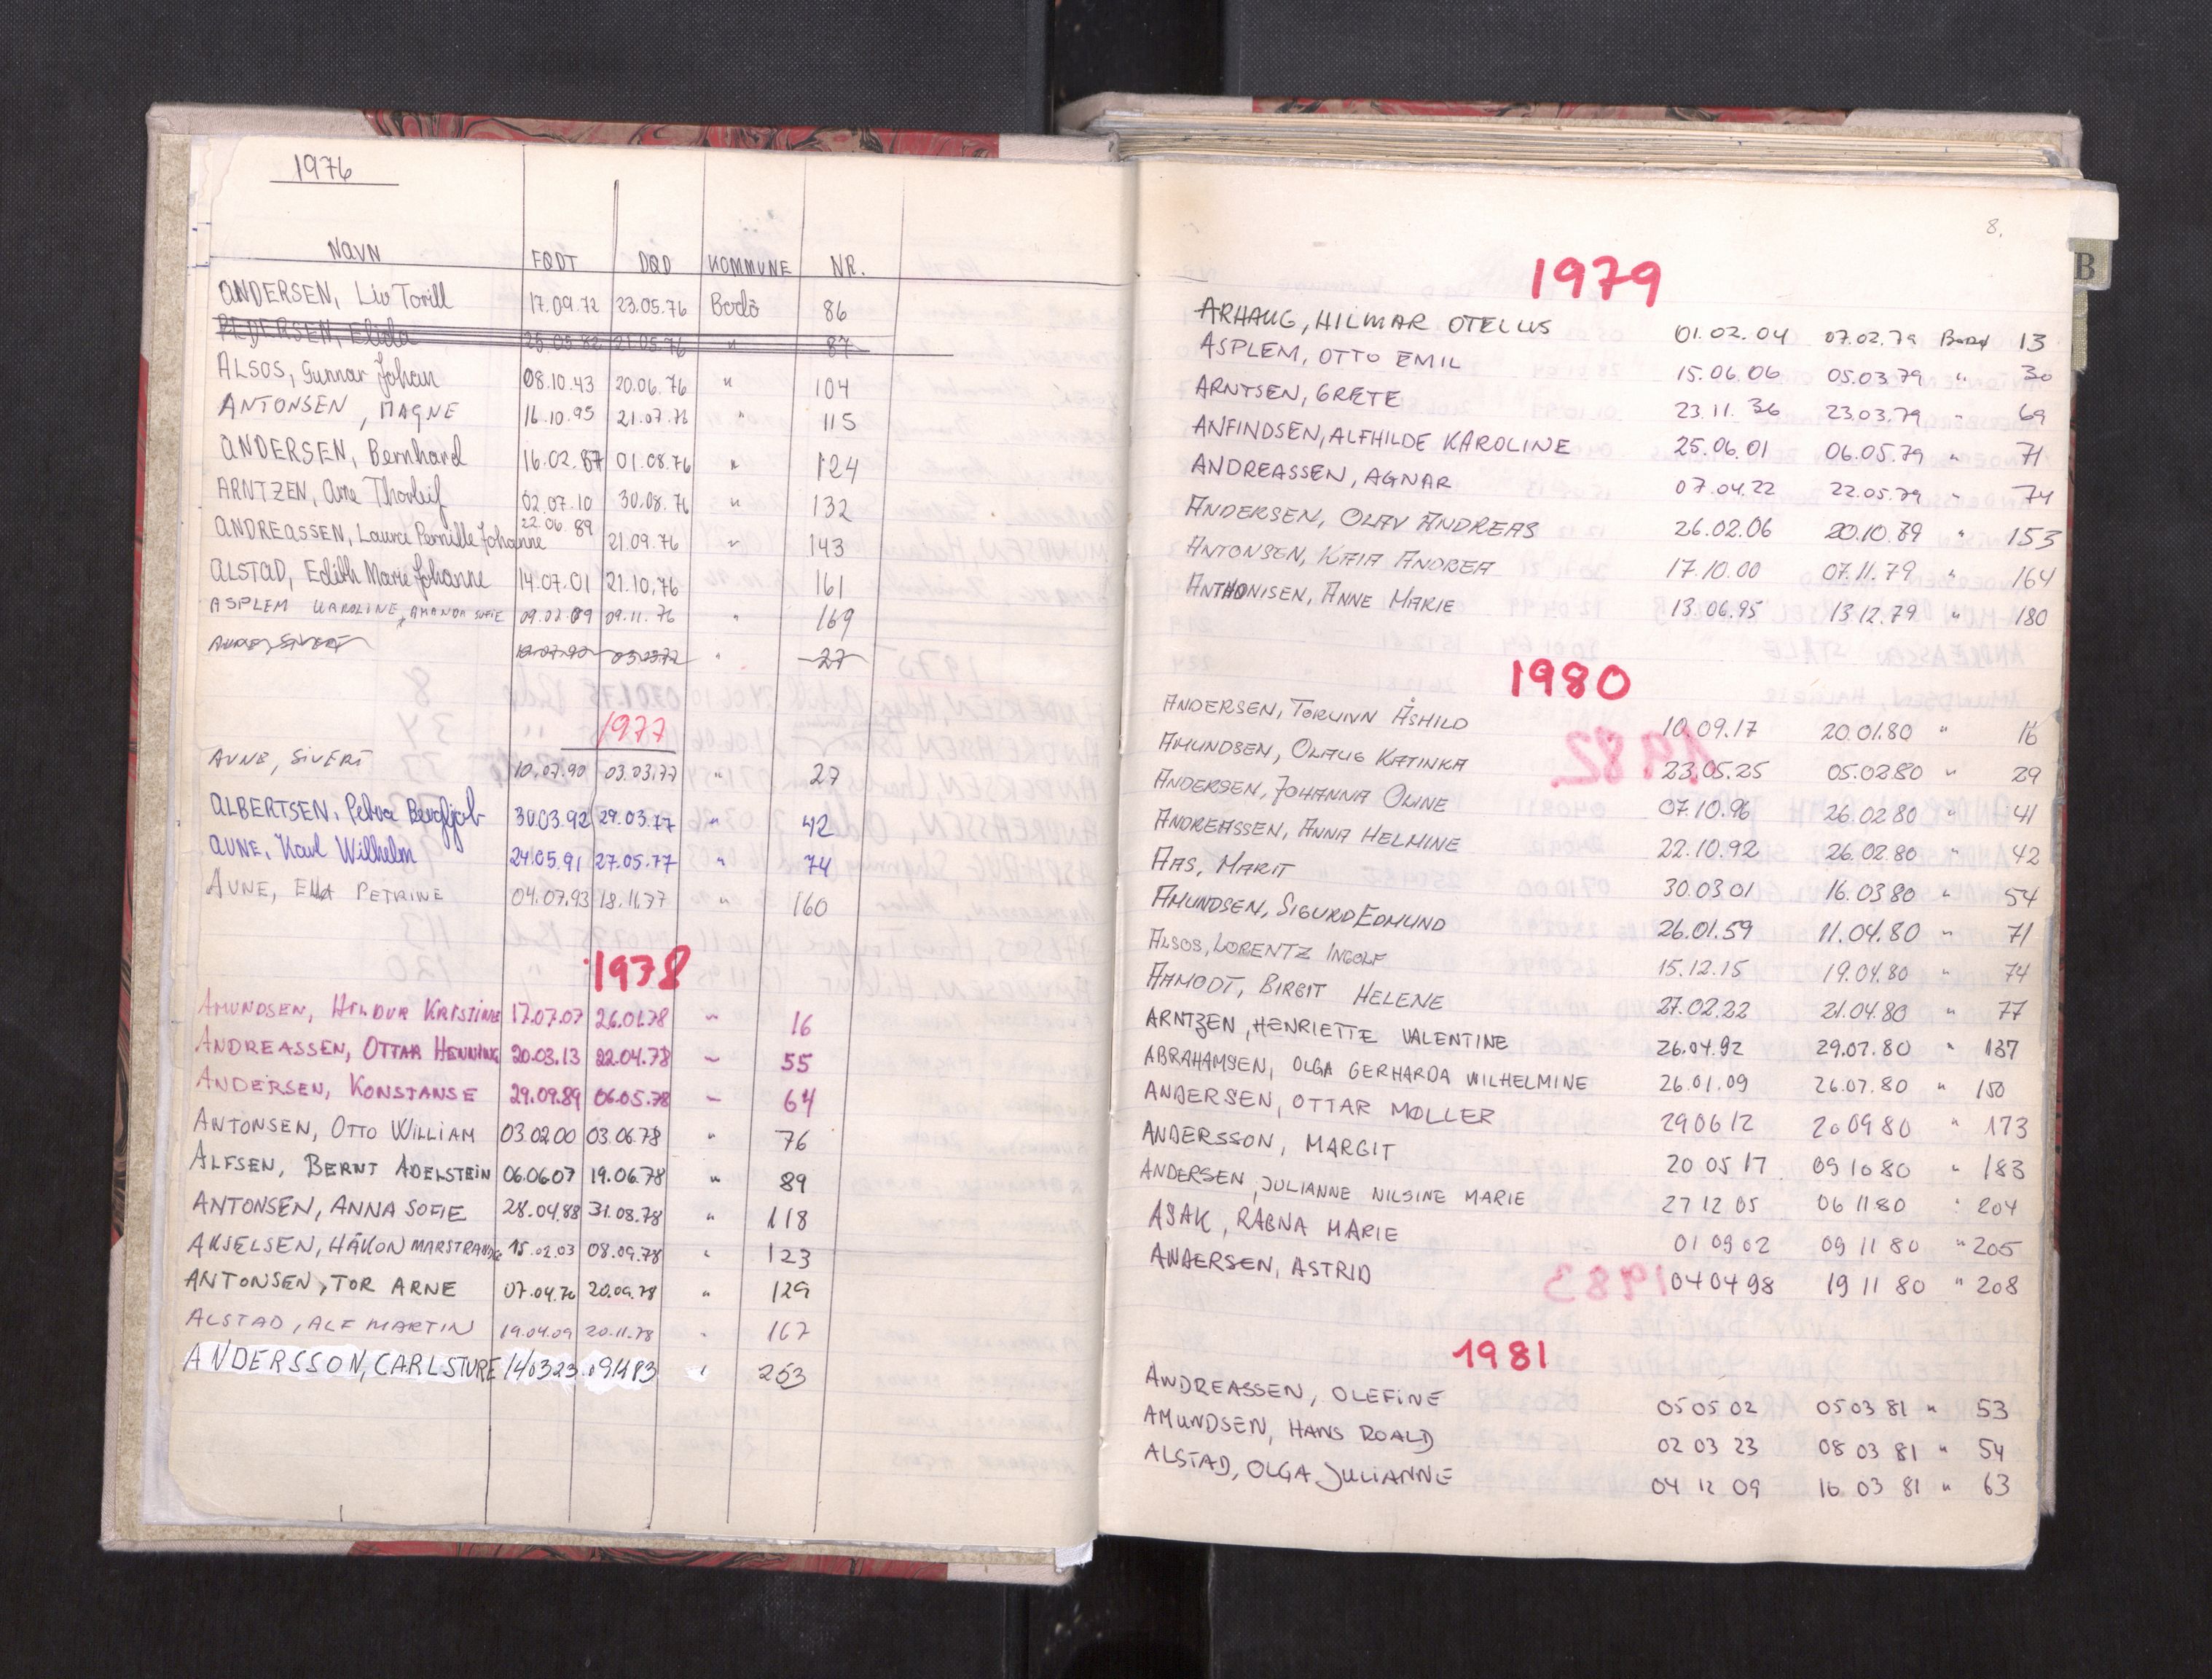 1976
NAVN FØDT DØD KOMMUNE NR.
ANDERSEN, Liv Torill 17.09.72 23.05.76 Bodø 86
PEDERSEN, Elida 21.05.76 " 87
ALSOS, Gunnar Johan 08.10.43 20.06.76 " 104
ANTONSEN, MAGNE 16.10.95 21.07.76 " 115
ANDERSEN, Bernhard 16.02.87 01.08.76 " 124
ARNTZEN, Arne Thorleif 02.07.10 30.08.76 " 132
ANDREASSEN, Laura Pernille Johanne 22.06.89 21.09.76 " 143
ALSTAD, Edith Marie Johanne 14.07.01 21.10.76 161
ASPLEM KAROLINE, AMANDA SOFIE 09.02.09 09.11.76 " 169
AUNE, SIVERT 10.07.90 03.03.77 " 27
1977
AUNE, SIVERT 10.07.90 03.03.77 " 27
ALBERTSEN, Petra Bergljot 30.03.92 29.03.77 " 42
AUNE, Karl Wilhelm 24.05.91 27.05.77 " 74
AUNE, ELLA PETRINE 04.07.93 18.11.77 " 160
1978
AMUNDSEN, HILDUR KRISTINE 17.07.07 26.01.78 " 16
ANDREASSEN, OTTAR HENNING 20.03.13 22.04.78 " 55
ANDERSEN, KONSTANSE 29.09.89 06.05.78 " 64
ANTONSEN, OTTO WILLIAM 03.02.00 03.06.78 " 76
ALFSEN, BERNT ADELSTEIN 06.06.07 19.06.78 " 89
ANTONSEN, ANNA SOFIE 28.04.88 31.08.78 " 118
AKSELSEN, HÅKON MARSTRANDE 15.02.03 08.09.78 " 123
ANTONSEN, TOR ARNE 07.04.76 20.09.78 " 129
ALSTAD, ALF MARTIN 19.04.09 20.11.78 " 167
ANDERSSON, CARL STURE 140323 091183 " 253
8.
B
1979
ARHAUG, HILMAR OTELUS 01.02.04 07.02.79 Bodø 13
ASPLEM, OTTO EMIL 15.06.06 05.03.79 " 30
ARNTSEN, GRETE 23.11.36 23.03.79 " 69
ANFINDSEN, ALFHILDE KAROLINE 25.06.01 06.05.79 " 71
ANDREASSEN, AGNAR 07.04.22 22.05.79 " 74
ANDERSEN, OLAV ANDREAS 26.02.06 20.10.89 " 153
ANTONSEN, KAIA ANDREA 17.10.00 07.11.79 " 164
ANTHONISEN, ANNE MARIE 13.06.95 13.12.79 " 180
1980
ANDERSEN, TORUNN ÅSHILD 10.09.17 20.01.80 " 16
AMUNDSEN, OLAUG KATINKA 23.05.25 05.02.80 " 29
ANDERSEN, JOHANNA OLINE 07.10.96 26.02.80 " 41
ANDREASSEN, ANNA HELMINE 22.10.92 26.02.80 " 42
AAS, MARIT 30.03.01 16.03.80 " 54
AMUNDSEN, SIGURD EDMUND 26.01.59 11.04.80 " 71
ALSOS, LORENTZ INGOLF 15.12.15 19.04.80 " 74
AAMODT, BIRGIT HELENE 27.02.22 21.04.80 " 77
ARNTZEN, HENRIETTE VALENTINE 26.04.92 29.07.80 " 137
ABRAHAMSEN, OLGA GERHARDA WILHELMINE 26.01.09 26.07.80 " 150
ANDERSEN, OTTAR MØLLER 290612 200980 " 173
ANDERSSON, MARGIT 20 05 17 09 10 80 " 183
ANDERSEN, JULIANNE NILSINE MARIE 27 12 05 06 11 80 " 204
ASAK, RAGNA MARIE 01 09 02 09 11 80 " 205
ANDERSEN, ASTRID 04 04 98 19 11 80 " 208
1981
ANDREASSEN, OLEFINE 05 05 02 05 03 81 " 53
AMUNDSEN, HANS ROALD 02 03 23 08 03 81 " 54
ALSTAD, OLGA JULIANNE 04 12 09 16 03 81 " 63